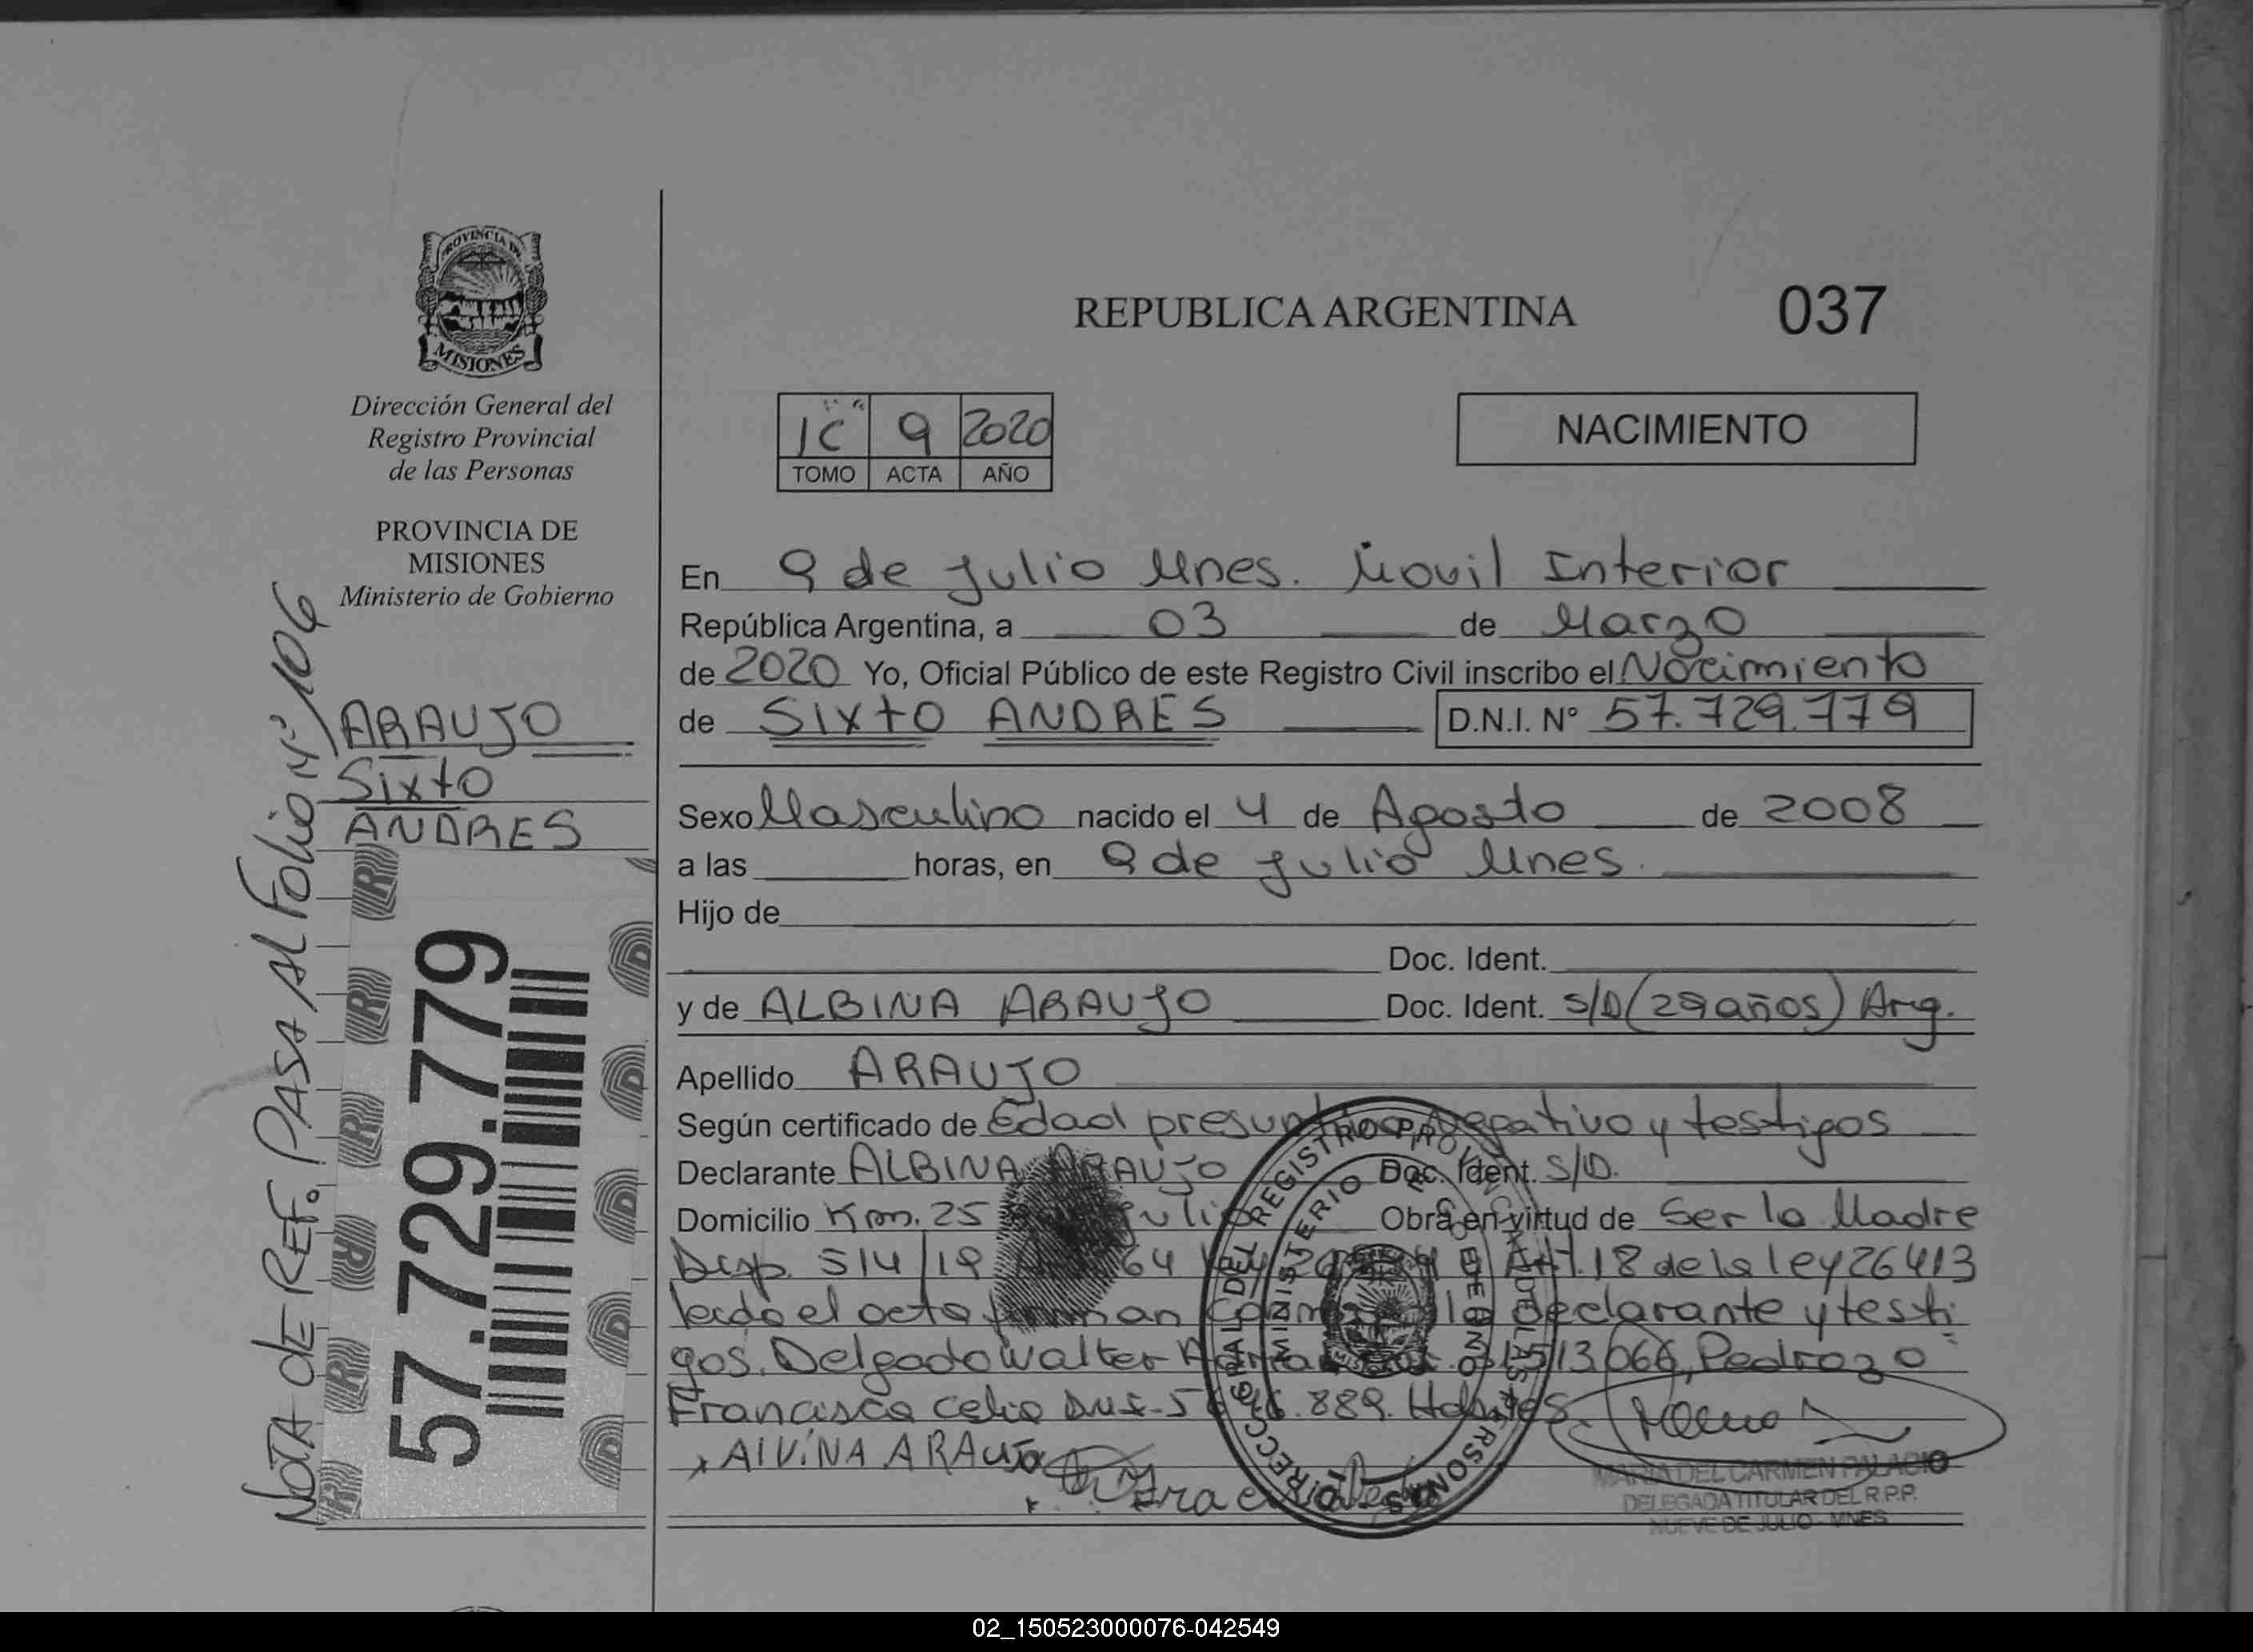 PROVINCIA DE
MISIONES
Dirección General del
Registro Provincial
de las Personas
PROVINCIA DE
MISIONES
Ministerio de Gobierno
ARAUJO
Sixto
ANDRES
57.729.779
NOTA de REF. PASA AL Folio Nº 106
REPUBLICA ARGENTINA
037
1C 9 2020
TOMO ACTA AÑO
NACIMIENTO
En 9 de Julio Mnes. Movil Interior
República Argentina, a 03 de Marzo
de 2020 Yo, Oficial Público de este Registro Civil inscribo el Nacimiento
de Sixto ANDRES D.N.I. Nº 57.729.779
Sexo Masculino nacido el 4 de Agosto de 2008
a las horas, en 9 de Julio Mnes.
Hijo de
Doc. Ident.
y de ALBINA ARAUJO Doc. Ident. S/D (29 años) Arg.
Apellido ARAUJO
Según certificado de Edad negativo y testigos
Declarante ALBINA ARAUJO Doc. Ident. S/D.
Domicilio Km. 25 Julio Obra en virtud de Ser la Madre
Disp. 514/19 Art. 18 de la ley 26413
leido el acta firman la declarante y testi
gos. Delgado Walter Pedrozo
Francisca Celia Habiles.
x AlViNA ARAUJO
MARIA DEL CARMEN PALACIO
DELEGADA TITULAR DEL R.P.P.
NUEVE DE JULIO - MNES
DIRECCION GRAL DEL REGISTRO PROVINCIAL DE LAS PERSONAS
MINISTERIO DE GOBIERNO
02_150523000076-042549